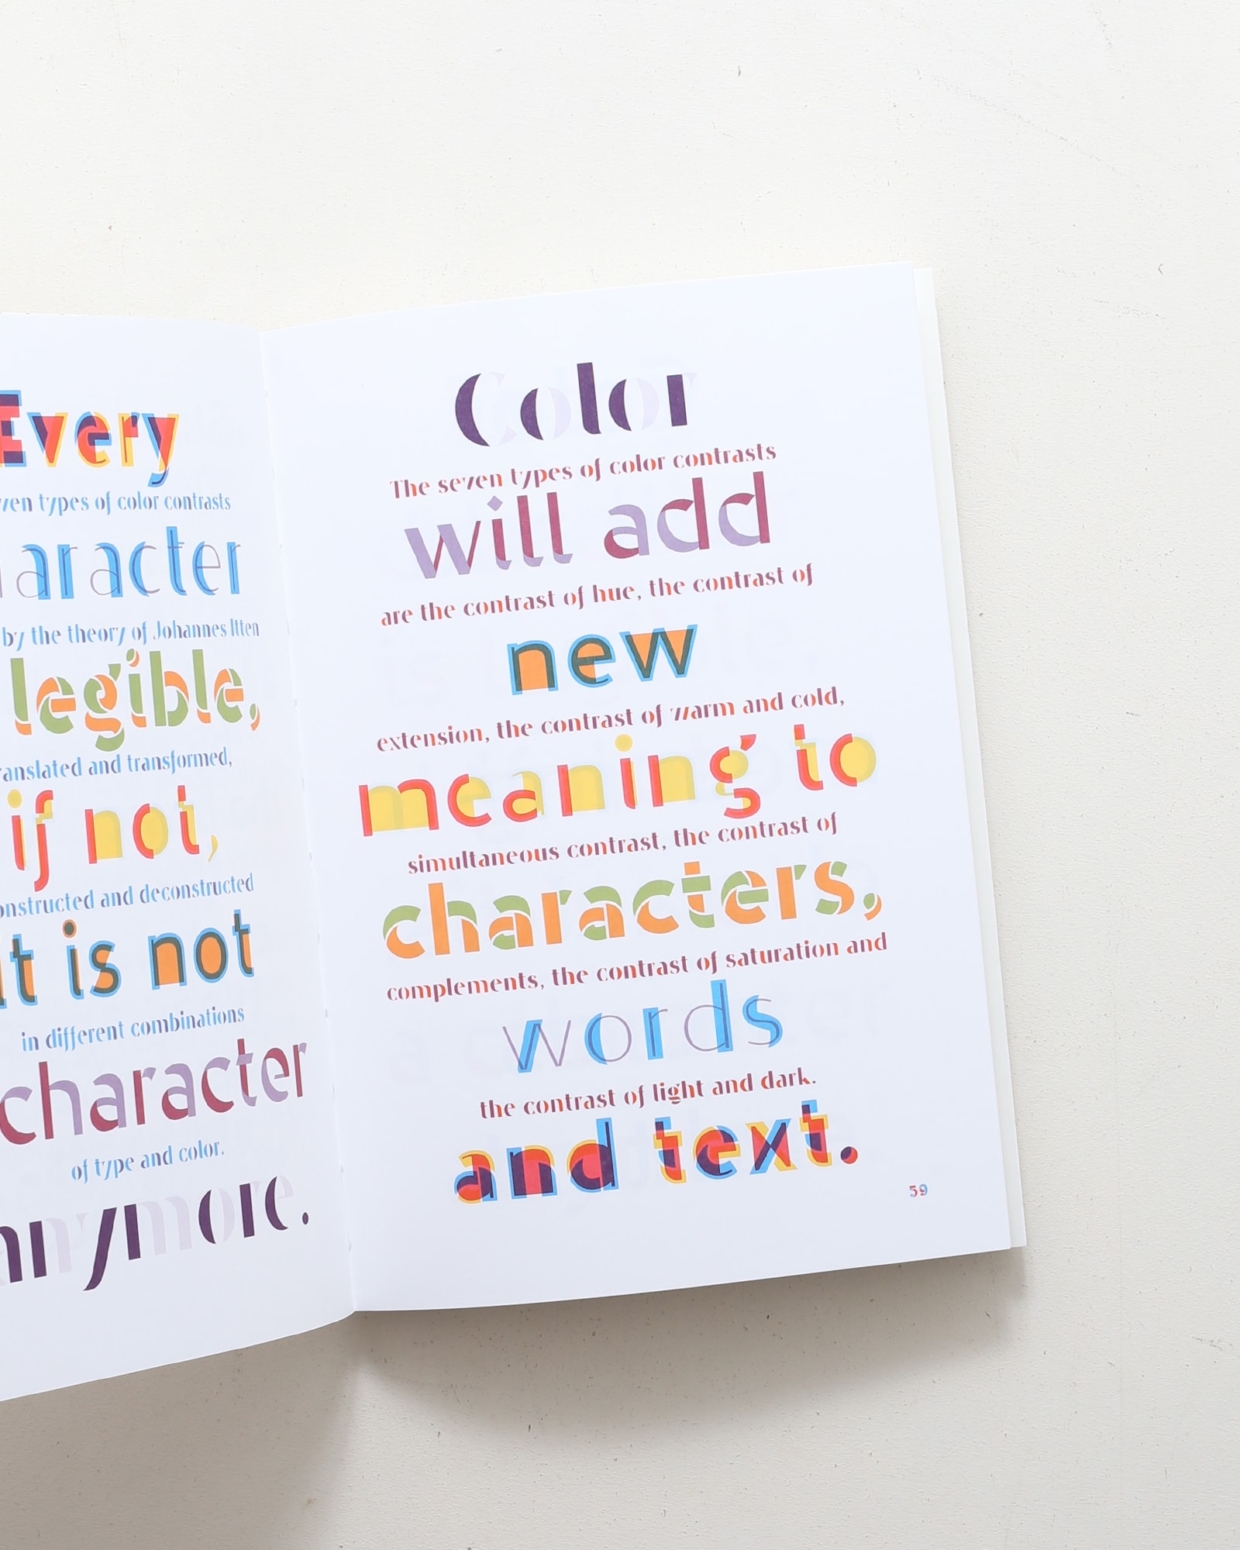 Every
types of color contrasts
legible,
by the theory of Johannes Itten
and transformed,
if not,
and deconstructed
is not
in different combinations
character
of type and color.
anymore.
Color
The seven types of color contrasts
will add
are the contrast of hue, the contrast of
new
extension, the contrast of warm and cold,
meaning to
simultaneous contrast, the contrast of
characters,
complements, the contrast of saturation and
words
the contrast of light and dark.
and text.
59